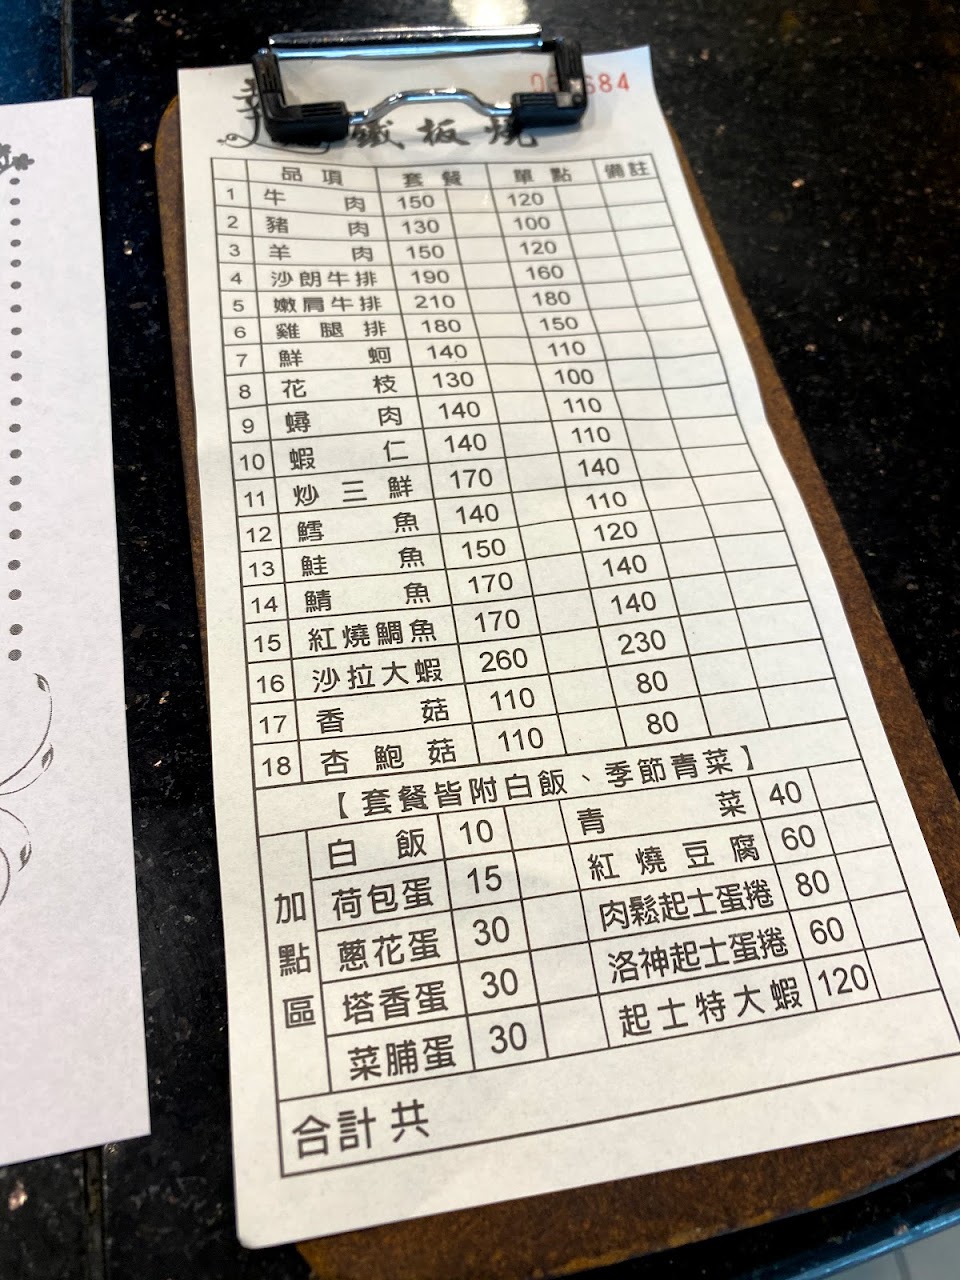 684
鐵板燒
品項 套餐 單點 備註
1 牛肉 150 120
2 豬肉 130 100
3 羊肉 150 120
4 沙朗牛排 190 160
5 嫩肩牛排 210 180
6 雞腿排 180 150
7 鮮蚵 140 110
8 花枝 130 100
9 蟳肉 140 110
10 蝦仁 140 110
11 炒三鮮 170 140
12 鱈魚 140 110
13 鮭魚 150 120
14 鯖魚 170 140
15 紅燒鯛魚 170 140
16 沙拉大蝦 260 230
17 香菇 110 80
18 杏鮑菇 110 80
【套餐皆附白飯、季節青菜】
加點區
白飯 10 青菜 40
荷包蛋 15 紅燒豆腐 60
蔥花蛋 30 肉鬆起士蛋捲 80
塔香蛋 30 洛神起士蛋捲 60
菜脯蛋 30 起士特大蝦 120
合計共